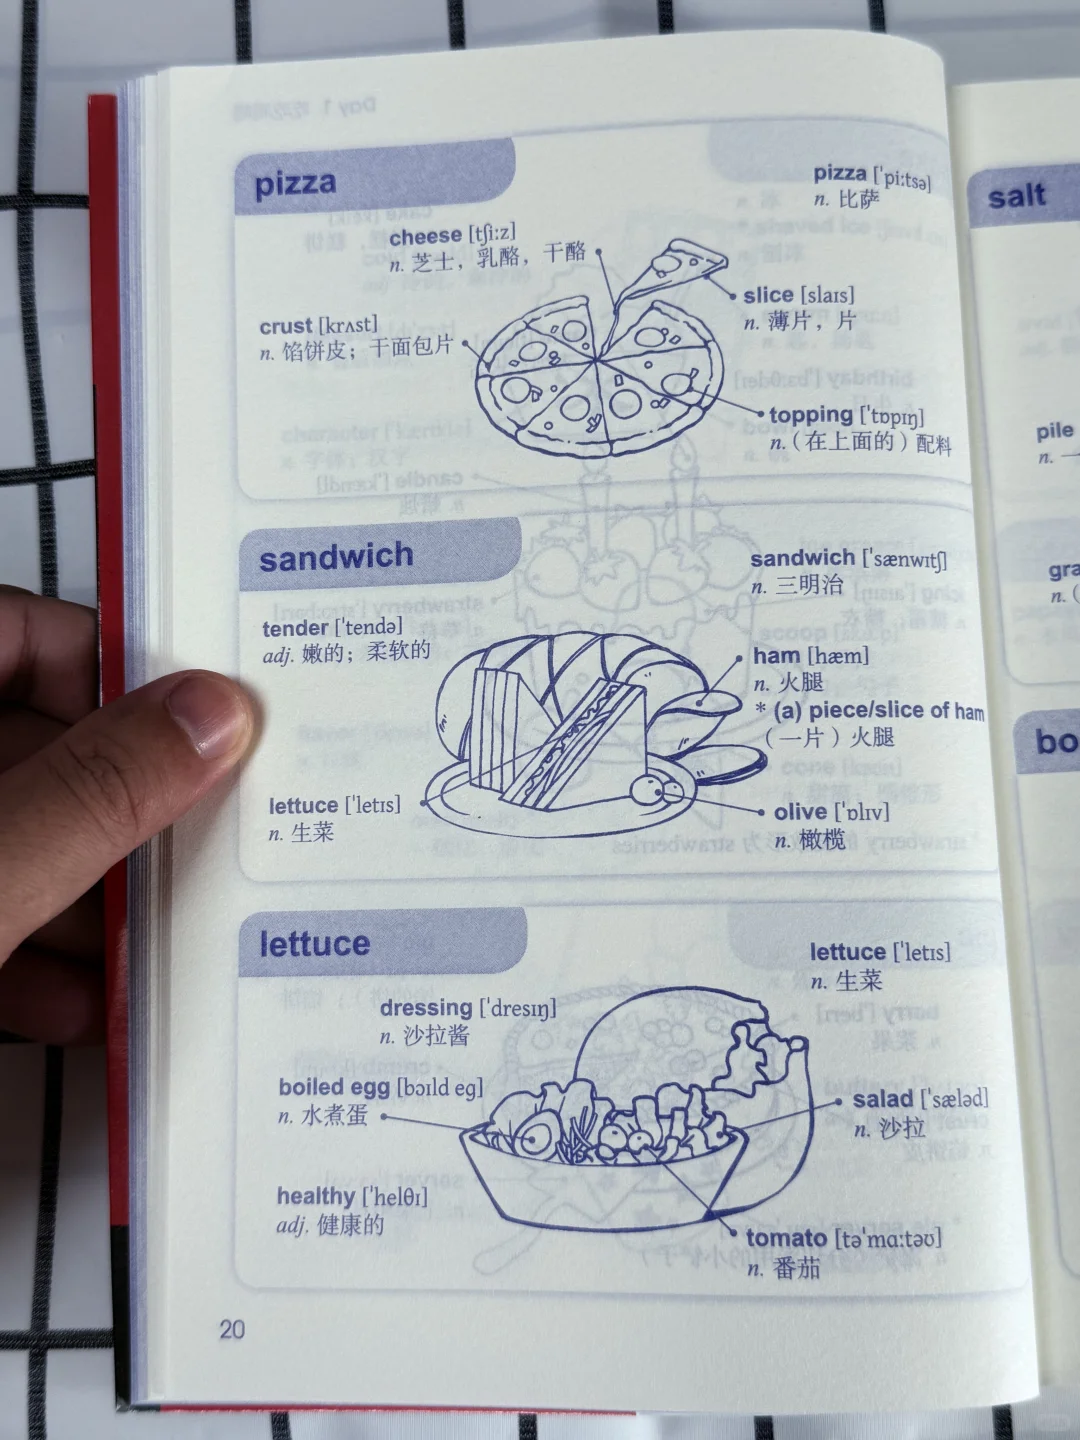 pizza
pizza [ˈpiːtsə]
n. 比萨
cheese [tʃiːz]
n. 芝士，乳酪，干酪
slice [slaɪs]
n. 薄片，片
crust [krʌst]
n. 馅饼皮；干面包片
topping [ˈtɒpɪŋ]
n.（在上面的）配料
sandwich
sandwich [ˈsænwɪtʃ]
n. 三明治
tender [ˈtendə]
adj. 嫩的；柔软的
ham [hæm]
n. 火腿
* (a) piece/slice of ham
（一片）火腿
lettuce [ˈletɪs]
n. 生菜
olive [ˈɒlɪv]
n. 橄榄
lettuce
lettuce [ˈletɪs]
n. 生菜
dressing [ˈdresɪŋ]
n. 沙拉酱
boiled egg [bɔɪld eg]
n. 水煮蛋
salad [ˈsæləd]
n. 沙拉
healthy [ˈhelθɪ]
adj. 健康的
tomato [təˈmɑːtəʊ]
n. 番茄
20
salt
pile
n.
gra
n.
bo